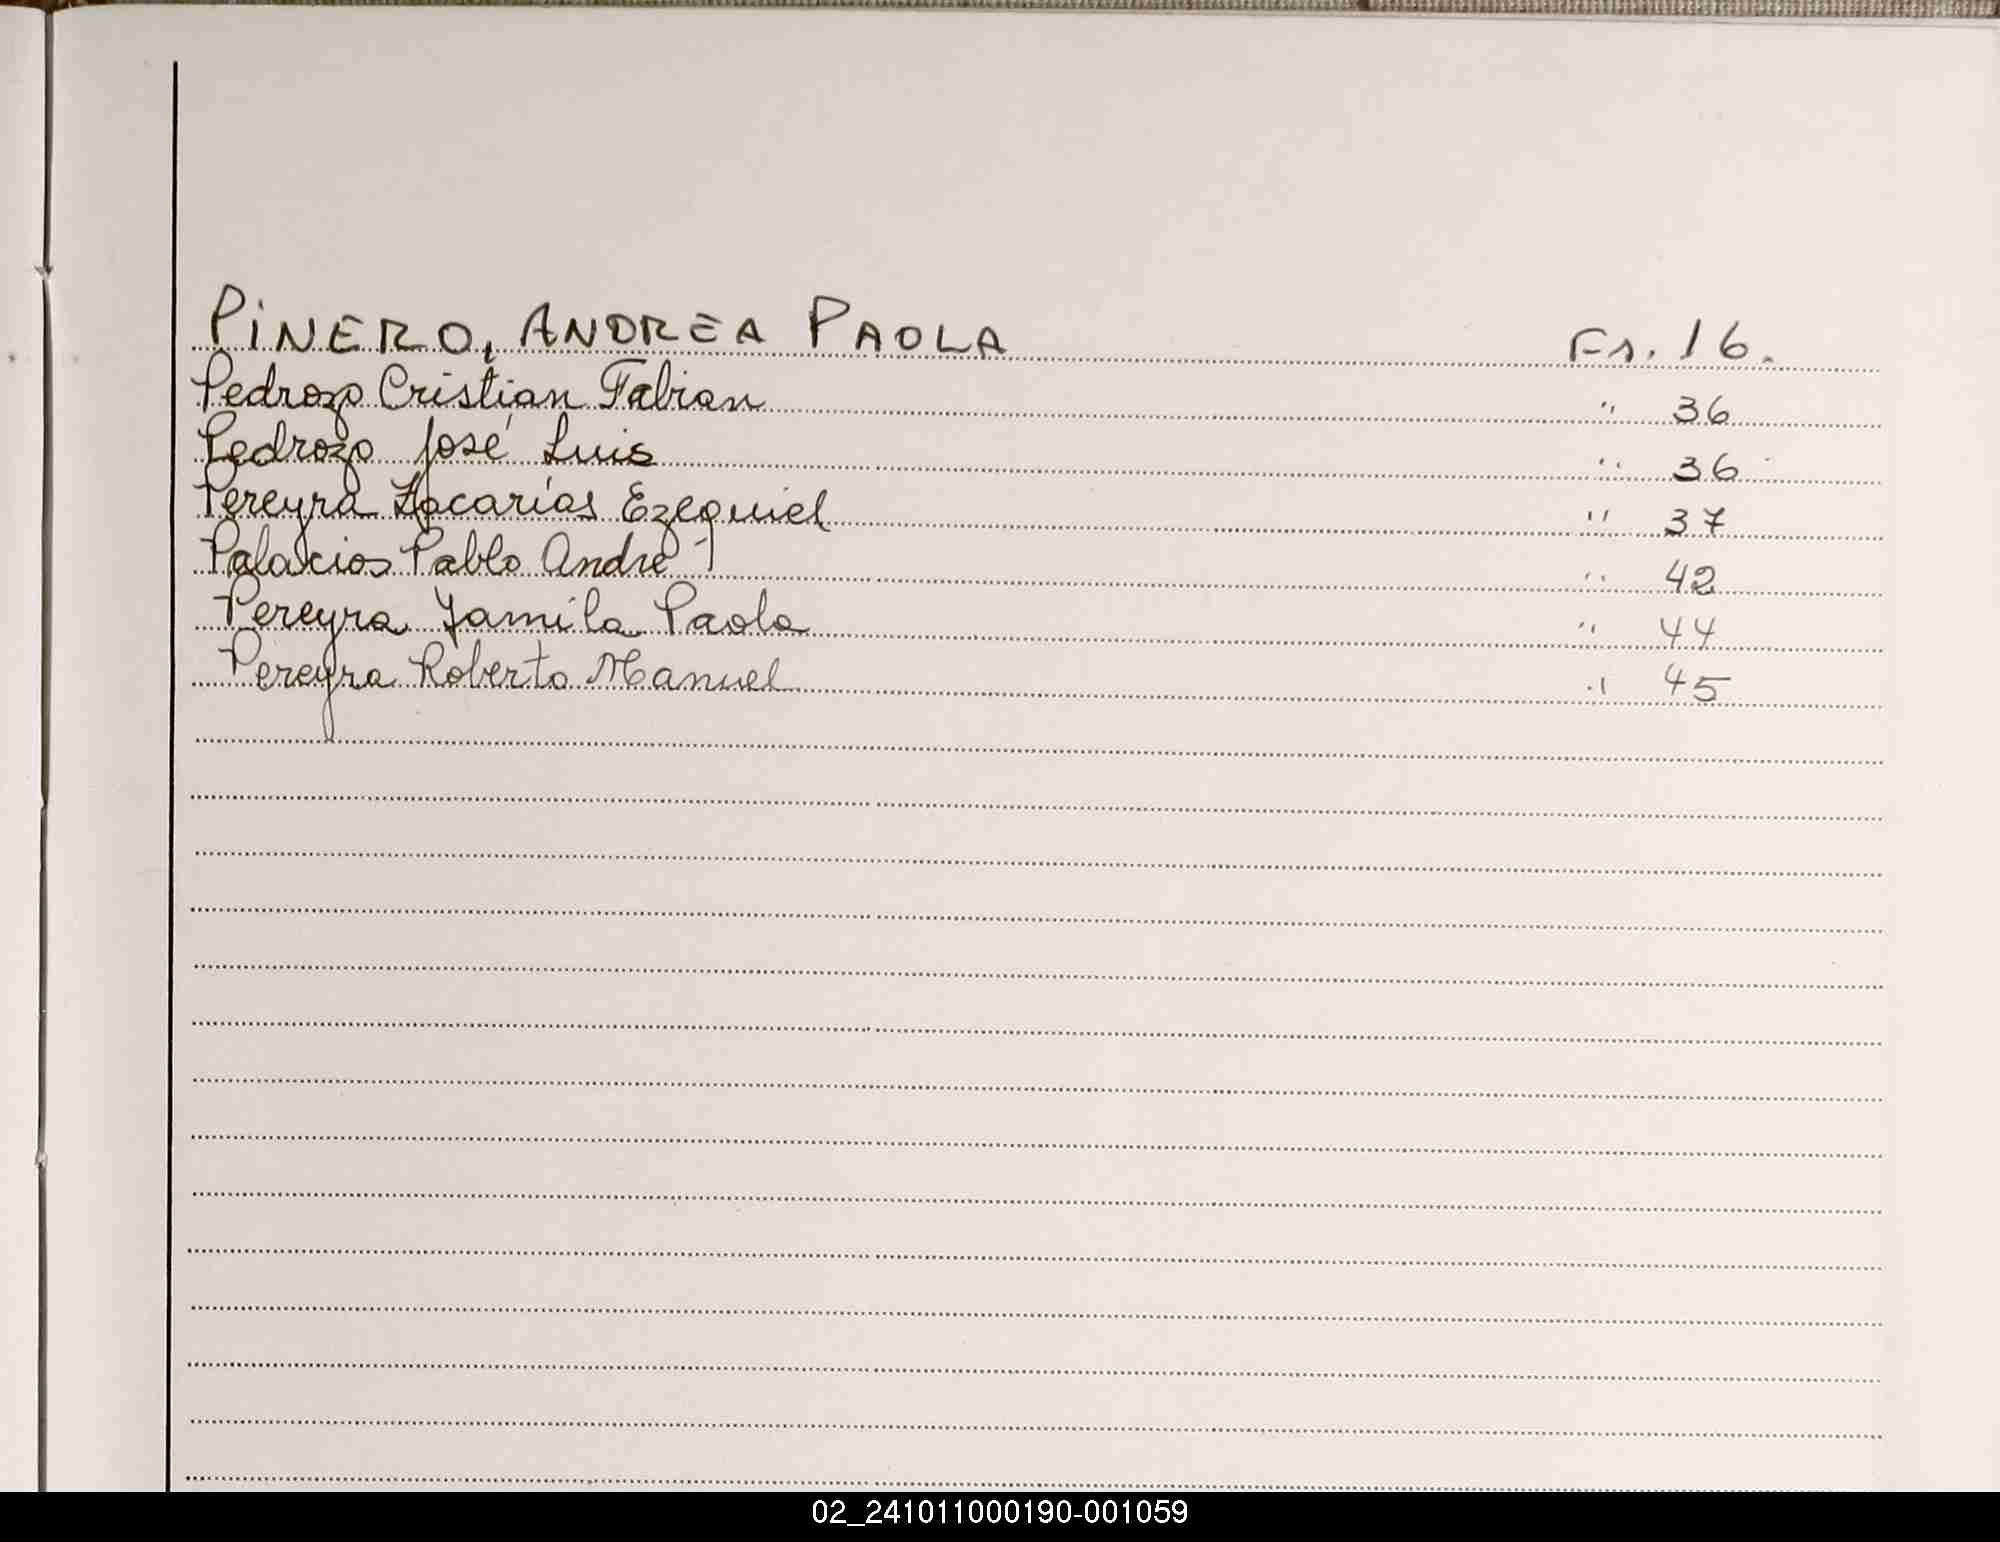 PINERO, ANDREA PAOLA Fs. 16.
Pedrozo Cristian Fabian " 36
Pedrozo José Luis " 36
Pereyra Zacarías Ezequiel " 37
Palacios Pablo André " 42
Pereyra Yamila Paola " 44
Pereyra Roberto Manuel " 45
02_241011000190-001059